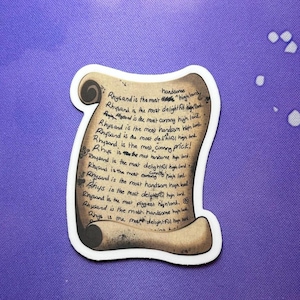 handsome
Rhysand is the most high lord
Rhysand is the most delightful high lord
Rhysand is the most cunning high lord
Rhysand is the most handsom high lord
Rhysand is the most delightful high
Rhysand is the most cunning prick!
Rhys is the most handsome high lord
Rhysand is the most delightful high lord
Rhysand is the most cunning high
Rhysand is the most handsom high lord
Rhys is the most delightful high lord
Rhysand is the most high lord
Rhysand is the most handsome high
Rhys is the most delightful high lord